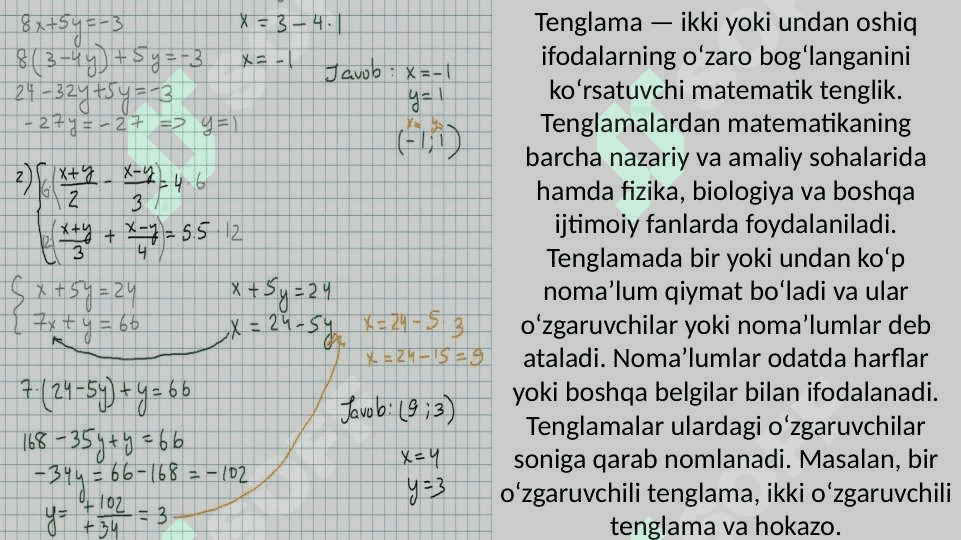 8x+5y=-3
8·(3-4y)+5y=-3
24-32y+5y=-3
-27y=-27 => y=1
x = 3-4·1
x = -1
Javob: x=-1
y=1
x= y=
(-1;1)
2) { 6·(x+y/2 - x-y/3)=4·6
12(x+y/3 + x-y/4)= 5.5·12
{ x+5y=24
7x+y=66
x+5y=24
x = 24-5y
x=24-5·3
x=24-15=9
7·(24-5y)+y=66
168-35y+y=66
-34y=66-168=-102
y= +102/+34 = 3
Javob: (9;3)
x=4
y=3
Tenglama — ikki yoki undan oshiq
ifodalarning o‘zaro bog‘langanini
ko‘rsatuvchi matematik tenglik.
Tenglamalardan matematikaning
barcha nazariy va amaliy sohalarida
hamda fizika, biologiya va boshqa
ijtimoiy fanlarda foydalaniladi.
Tenglamada bir yoki undan ko‘p
noma’lum qiymat bo‘ladi va ular
o‘zgaruvchilar yoki noma’lumlar deb
ataladi. Noma’lumlar odatda harflar
yoki boshqa belgilar bilan ifodalanadi.
Tenglamalar ulardagi o‘zgaruvchilar
soniga qarab nomlanadi. Masalan, bir
o‘zgaruvchili tenglama, ikki o‘zgaruvchili
tenglama va hokazo.